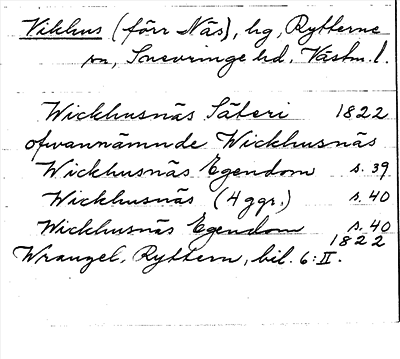 Vikhus (förr Näs), hg, Rytterne
sn, Snevringe hd. Västm.l.
Wickhusnäs Säteri 1822
ofvannämnde Wickhusnäs
Wickhusnäs Egendom s. 39
Wickhusnäs (4 ggr.) s. 40
Wickhusnäs Egendom s. 40
1822
Wrangel, Ryttern, bil. 6:II.